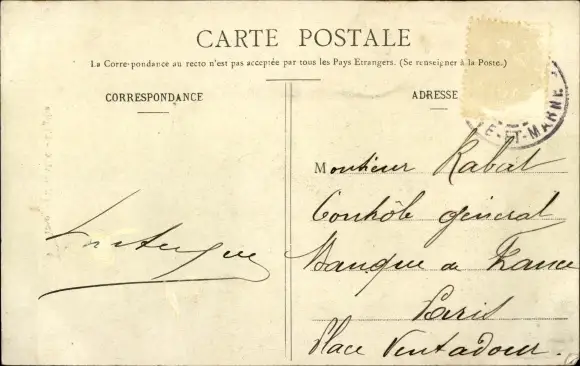 CARTE POSTALE
La Corre-pondance au recto n'est pas acceptée par tous les Pays Etrangers. (Se renseigner à la Poste.)
CORRESPONDANCE
ADRESSE
E-ET-MARNE
Monsieur Rabat
Contrôle général
Banque de France
Paris
Place Ventadour.